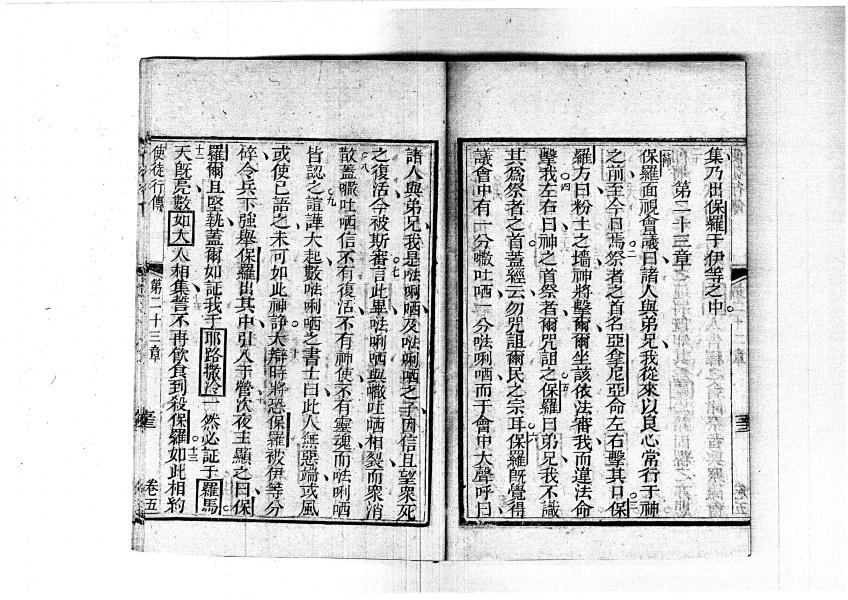 集乃出保羅于伊等之中
第二十三章
保羅面視會議曰諸人與弟兄我從來以良心常行于神
之前至今日焉祭者之首名亞拿尼亞命左右擊其口保
羅方曰粉土之墻神將擊爾爾坐該依法審我而違法命
擊我左右曰神之首祭者爾咒詛之保羅曰弟兄我不識
其為祭者之首蓋經云勿咒詛爾民之宗耳保羅旣覺得
議會中有一分㘔吐哂一分㗶唎哂而于會中大聲呼曰
諸人與弟兄我是㗶唎哂及㗶唎哂之子因信且望衆死
之復活今被斯審言此畢㗶唎哂與㘔吐哂相裂而衆消
散蓋㘔吐哂信不有復活不有神使不有靈魂而㗶唎哂
皆認之諠譁大起數㗶唎哂之書士曰此人無惡端或風
或使已語之未可如此神諍大辯時將恐保羅被伊等分
碎令兵下強舉保羅出其中引入于營次夜主顯之曰保
羅爾且堅執蓋爾如証我于耶路撒冷一然必証于羅馬
天旣亮數如大人相集誓不再飲食到殺保羅如此相約
使徒行傳
第二十三章
卷五